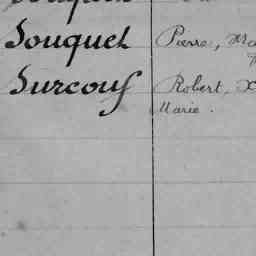 Souquet Pierre,
Surcouf Robert, X
Marie.